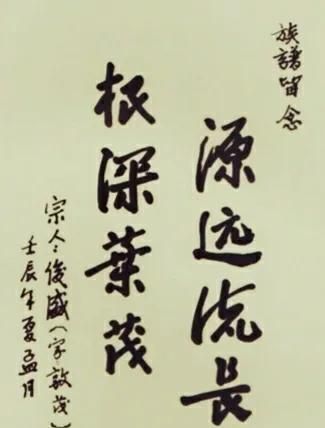 族譜留念
源远流長
根深葉茂
宗人：俊盛（字敦茂）
壬辰年夏孟月